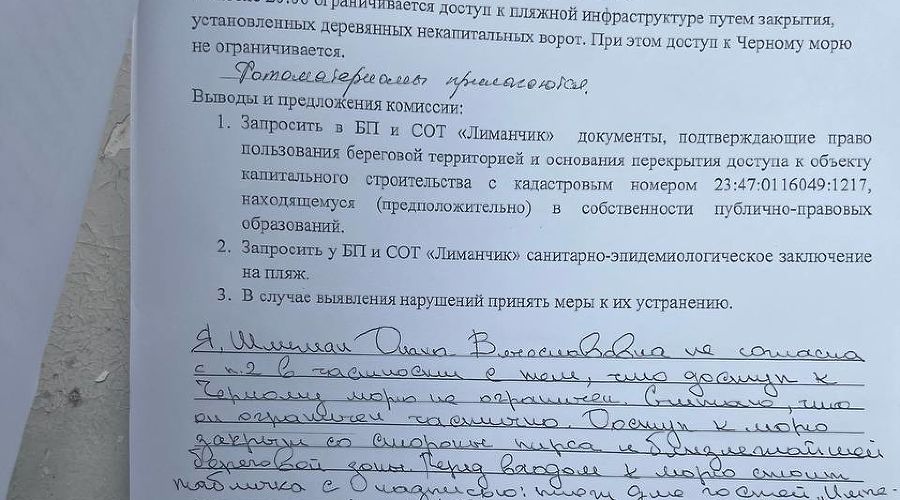 ограничивается доступ к пляжной инфраструктуре путем закрытия,
установленных деревянных некапитальных ворот. При этом доступ к Черному морю
не ограничивается.
Фотоматериалы прилагаются.
Выводы и предложения комиссии:
1. Запросить в БП и СОТ «Лиманчик» документы, подтверждающие право
пользования береговой территорией и основания перекрытия доступа к объекту
капитального строительства с кадастровым номером 23:47:0116049:1217,
находящемуся (предположительно) в собственности публично-правовых
образований.
2. Запросить у БП и СОТ «Лиманчик» санитарно-эпидемиологическое заключение
на пляж.
3. В случае выявления нарушений принять меры к их устранению.
Я, Вячеславовна не согласна
с п.2 в частности с тем, что доступ к
Черному морю не ограничен. Считаю, что
он ограничен частично. Доступ к морю
закрыт со стороны пирса и близлежайшей
береговой зоны. Перед входом к морю стоит
табличка с надписью: пляж для гостей